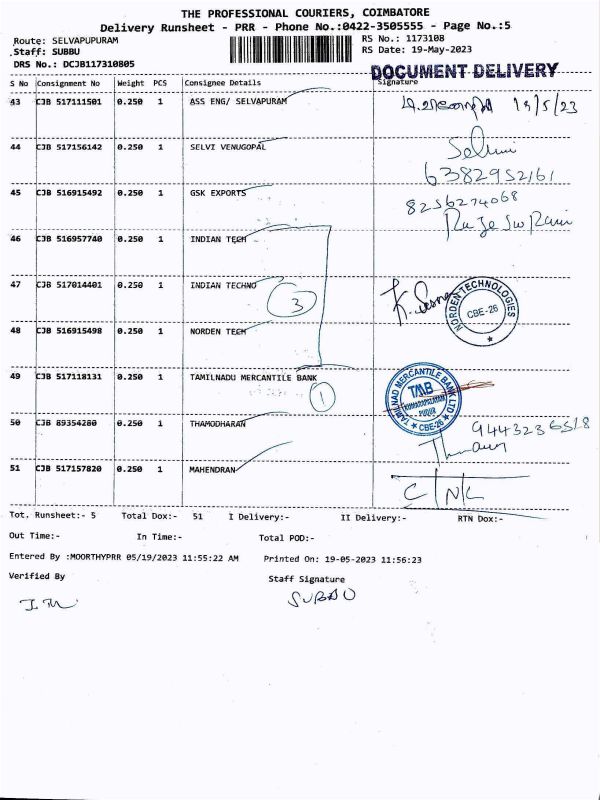 THE PROFESSIONAL COURIERS, COIMBATORE
Delivery Runsheet - PRR - Phone No.:0422-3505555 - Page No.:5
Route: SELVAPUPURAM RS No.: 1173108
.Staff: SUBBU RS Date: 19-May-2023
DRS No.: DCJB117310805
DOCUMENT DELIVERY
S No Consignment No Weight PCS Consignee Details Signature
43 CJB 517111501 0.250 1 ASS ENG/ SELVAPURAM 19/5/23
44 CJB 517156142 0.250 1 SELVI VENUGOPAL
6382952161
45 CJB 516915492 0.250 1 GSK EXPORTS 8256274068
Rajeswrani
46 CJB 516957740 0.250 1 INDIAN TECH
47 CJB 517014401 0.250 1 INDIAN TECHNO
3
NORDEN TECHNOLOGIES
CBE-26
48 CJB 516915498 0.250 1 NORDEN TECH
49 CJB 517118131 0.250 1 TAMILNADU MERCANTILE BANK
1
TAMILNAD MERCANTILE BANK LTD
TMB
KUMARAPALAYAM
PUDUR
CBE-26
50 CJB 89354280 0.250 1 THAMODHARAN 9443236518
51 CJB 517157820 0.250 1 MAHENDRAN
C/N/L
Tot. Runsheet:- 5 Total Dox:- 51 I Delivery:- II Delivery:- RTN Dox:-
Out Time:- In Time:- Total POD:-
Entered By :MOORTHYPRR 05/19/2023 11:55:22 AM Printed On: 19-05-2023 11:56:23
Verified By Staff Signature
SUBBU